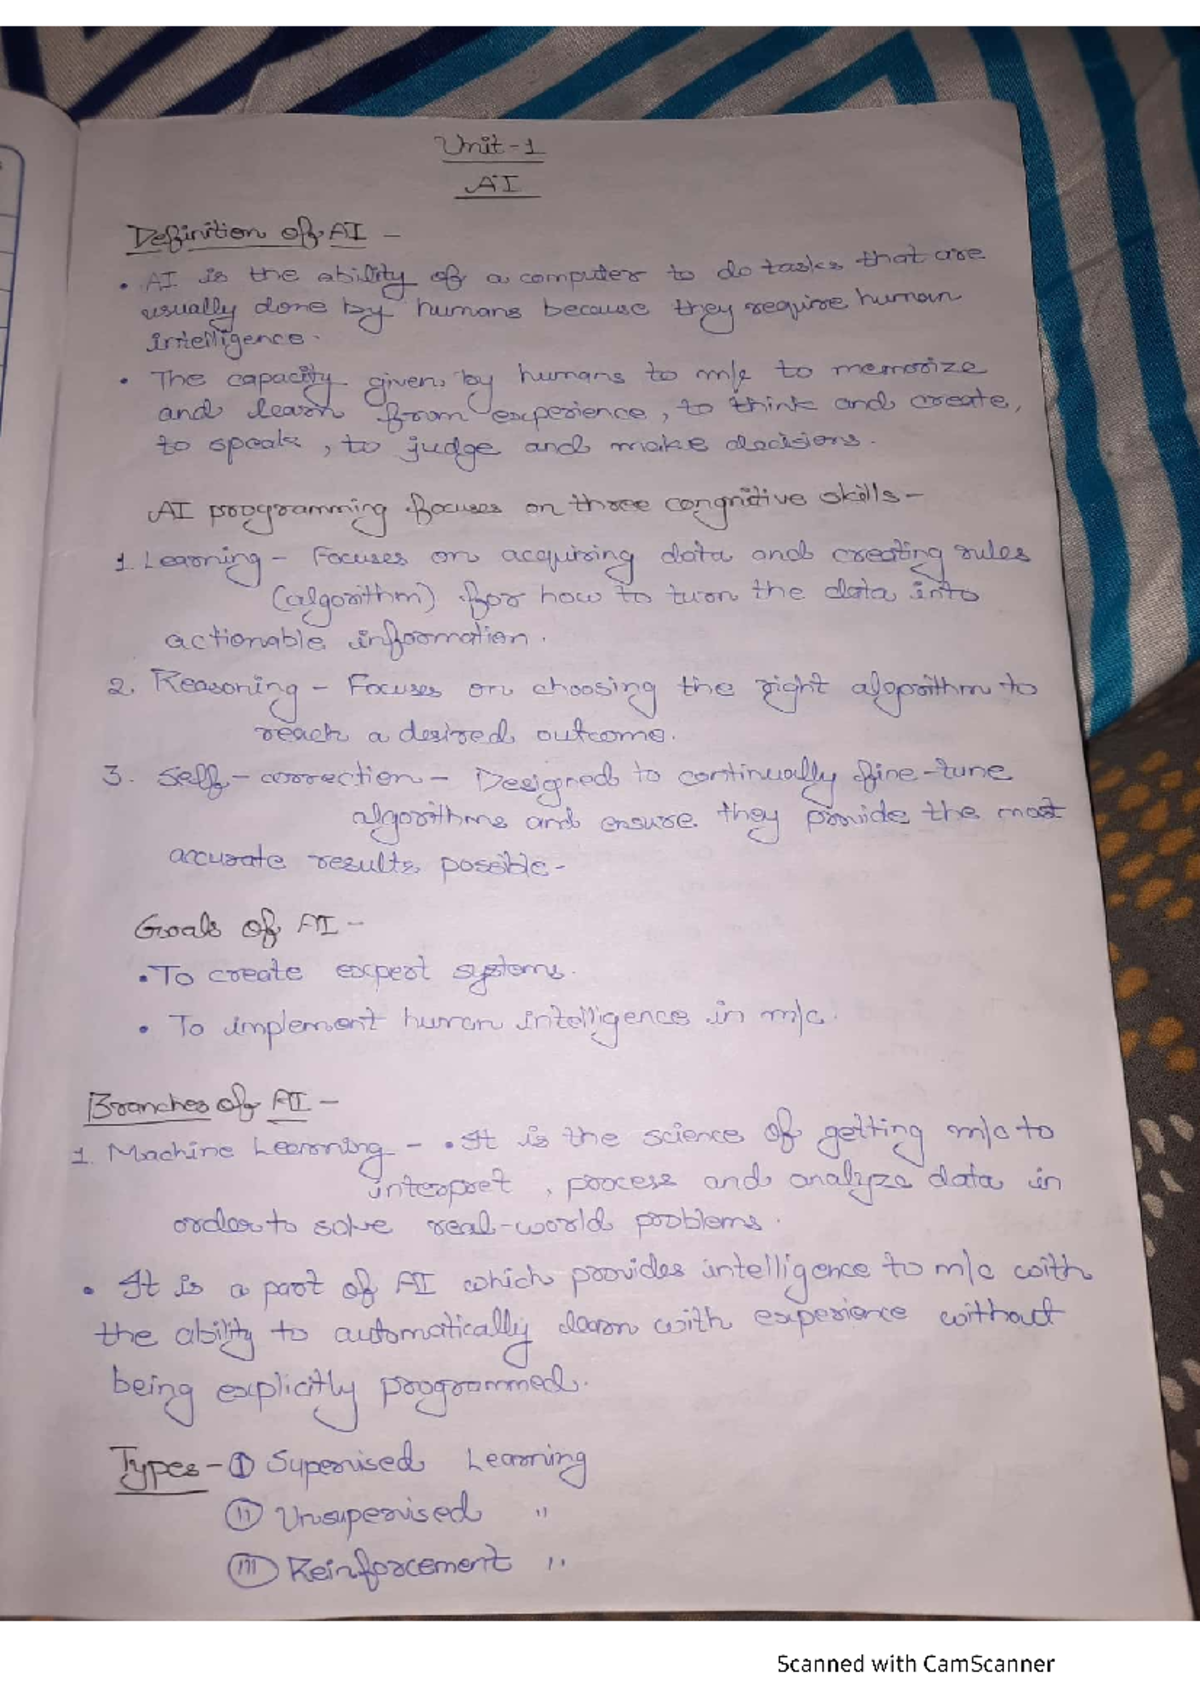 Unit-1
AI
Definition of AI -
• AI is the ability of a computer to do tasks that are
usually done by humans because they require human
intelligence.
• The capacity given by humans to m/c to memorize
and learn from experience, to think and create,
to speak, to judge and make decisions.
AI programming focuses on three congnitive skills-
1. Learning - Focuses on acquiring data and creating rules
(algorithm) for how to turn the data into
actionable information.
2. Reasoning - Focuses on choosing the right algorithm to
reach a desired outcome.
3. Self-correction - Designed to continually fine-tune
algorithms and ensure they provide the most
accurate results possible-
Goals of AI -
• To create expert systems.
• To implement human intelligence in m/c.
Branches of AI -
1. Machine Learning - • It is the science of getting m/c to
interpret, process and analyze data in
order to solve real-world problems.
• It is a part of AI which provides intelligence to m/c with
the ability to automatically learn with experience without
being explicitly programmed.
Types - (I) Supervised Learning
(II) Unsupervised "
(III) Reinforcement "
Scanned with CamScanner